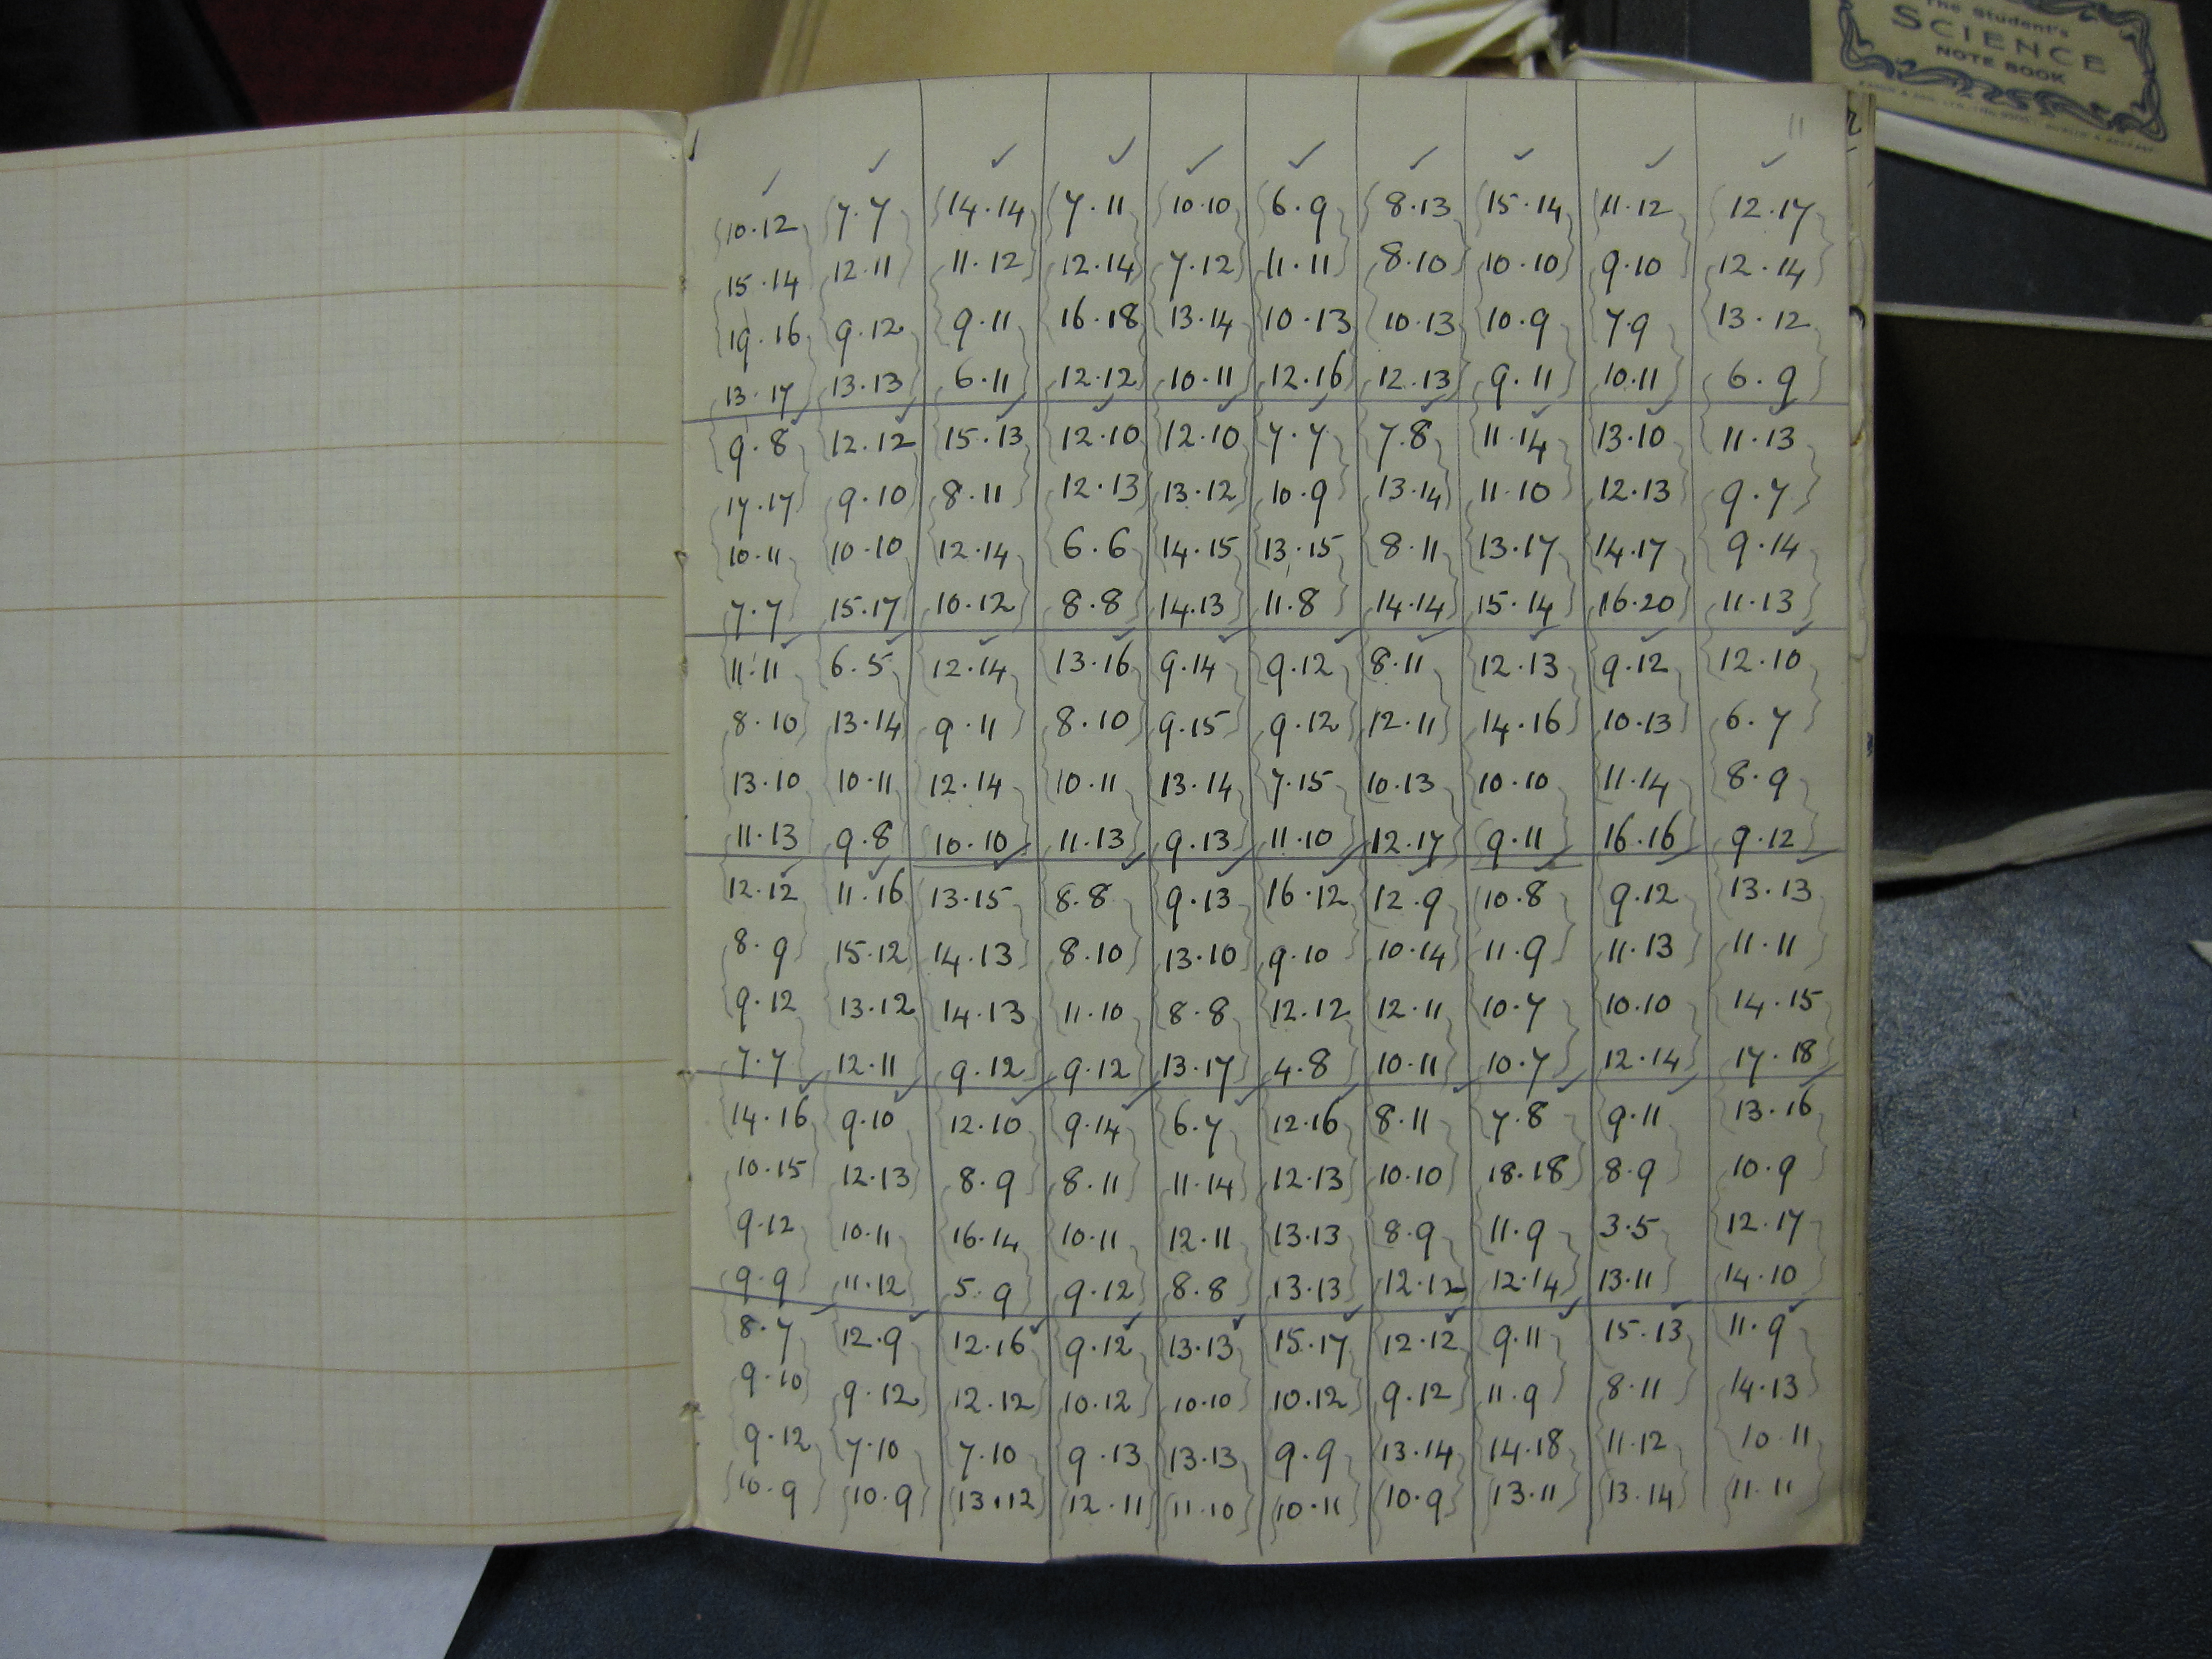 The Student's
SCIENCE
NOTE BOOK
11
10.12 7.7 14.14 7.11 10.10 6.9 8.13 15.14 11.12 12.17
15.14 12.11 11.12 12.14 7.12 11.11 8.10 10.10 9.10 12.14
19.16 9.12 9.11 16.18 13.14 10.13 10.13 10.9 7.9 13.12
13.17 13.13 6.11 12.12 10.11 12.16 12.13 9.11 10.11 6.9
9.8 12.12 15.13 12.10 12.10 7.7 7.8 11.14 13.10 11.13
17.17 9.10 8.11 12.13 13.12 10.9 13.14 11.10 12.13 9.7
10.11 10.10 12.14 6.6 14.15 13.15 8.11 13.17 14.17 9.14
7.7 15.17 10.12 8.8 14.13 11.8 14.14 15.14 16.20 11.13
11.11 6.5 12.14 13.16 9.14 9.12 8.11 12.13 9.12 12.10
8.10 13.14 9.11 8.10 9.15 9.12 12.11 14.16 10.13 6.7
13.10 10.11 12.14 10.11 13.14 7.15 10.13 10.10 11.14 8.9
11.13 9.8 10.10 11.13 9.13 11.10 12.17 9.11 16.16 9.12
12.12 11.16 13.15 8.8 9.13 16.12 12.9 10.8 9.12 13.13
8.9 15.12 14.13 8.10 13.10 9.10 10.14 11.9 11.13 11.11
9.12 13.12 14.13 11.10 8.8 12.12 12.11 10.7 10.10 14.15
7.7 12.11 9.12 9.12 13.17 4.8 10.11 10.7 12.14 17.18
14.16 9.10 12.10 9.14 6.7 12.16 8.11 7.8 9.11 13.16
10.15 12.13 8.9 8.11 11.14 12.13 10.10 18.18 8.9 10.9
9.12 10.11 16.14 10.11 12.11 13.13 8.9 11.9 3.5 12.17
9.9 11.12 5.9 9.12 8.8 13.13 12.12 12.14 13.11 14.10
8.7 12.9 12.16 9.12 13.13 15.17 12.12 9.11 15.13 11.9
9.10 9.12 12.12 10.12 10.10 10.12 9.12 11.9 8.11 14.13
9.12 7.10 7.10 9.13 13.13 9.9 13.14 14.18 11.12 10.11
10.9 10.9 13.12 12.11 11.10 10.11 10.9 13.11 13.14 11.11